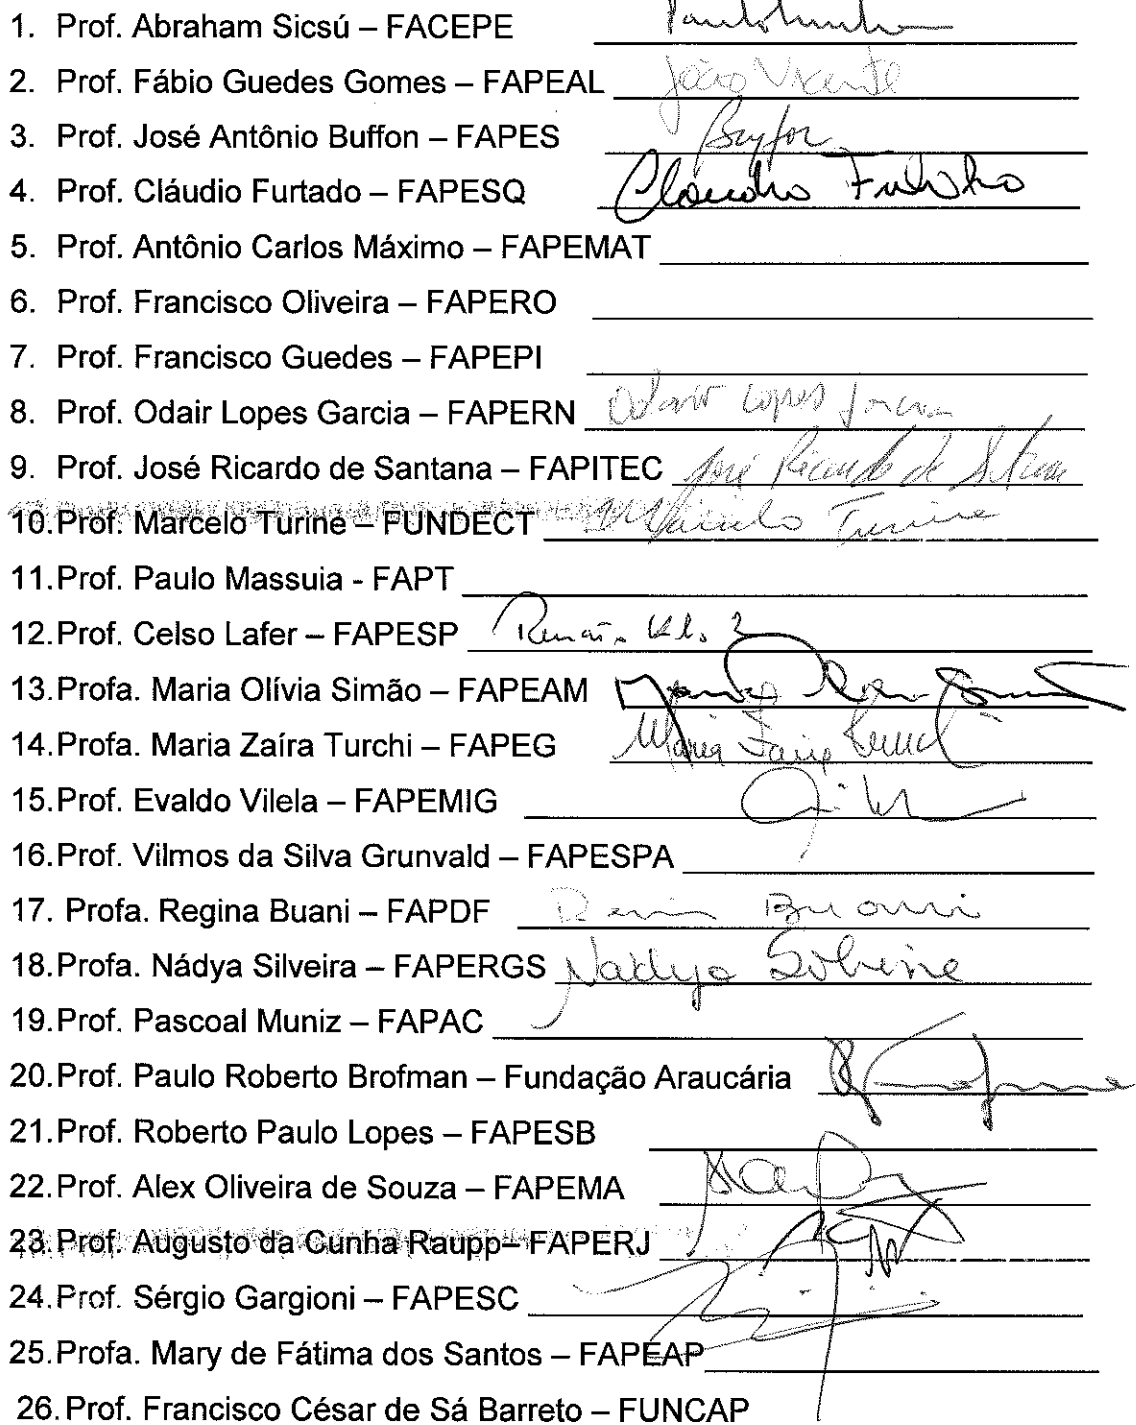 1. Prof. Abraham Sicsú – FACEPE
2. Prof. Fábio Guedes Gomes – FAPEAL João Vicente
3. Prof. José Antônio Buffon – FAPES Buffon
4. Prof. Cláudio Furtado – FAPESQ Claudio Furtado
5. Prof. Antônio Carlos Máximo – FAPEMAT
6. Prof. Francisco Oliveira – FAPERO
7. Prof. Francisco Guedes – FAPEPI
8. Prof. Odair Lopes Garcia – FAPERN Odair Lopes Garcia
9. Prof. José Ricardo de Santana – FAPITEC José Ricardo de Santana
10.Prof. Marcelo Turine – FUNDECT Marcelo Turine
11.Prof. Paulo Massuia - FAPT
12.Prof. Celso Lafer – FAPESP
13.Profa. Maria Olívia Simão – FAPEAM
14.Profa. Maria Zaíra Turchi – FAPEG Maria Zaira Turchi
15.Prof. Evaldo Vilela – FAPEMIG
16.Prof. Vilmos da Silva Grunvald – FAPESPA
17. Profa. Regina Buani – FAPDF Regina Buani
18.Profa. Nádya Silveira – FAPERGS Nadya Silveira
19.Prof. Pascoal Muniz – FAPAC
20.Prof. Paulo Roberto Brofman – Fundação Araucária
21.Prof. Roberto Paulo Lopes – FAPESB
22.Prof. Alex Oliveira de Souza – FAPEMA
23.Prof. Augusto da Cunha Raupp– FAPERJ
24.Prof. Sérgio Gargioni – FAPESC
25.Profa. Mary de Fátima dos Santos – FAPEAP
26.Prof. Francisco César de Sá Barreto – FUNCAP